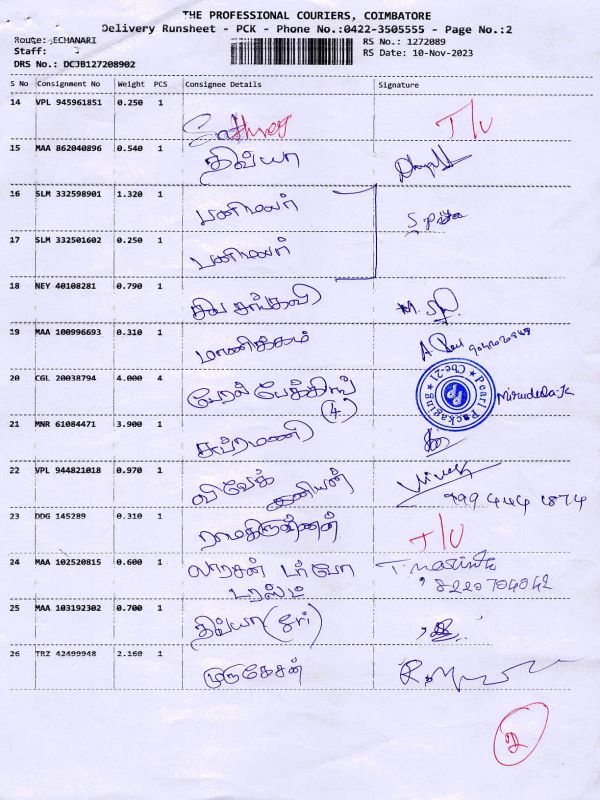 THE PROFESSIONAL COURIERS, COIMBATORE
Delivery Runsheet - PCK - Phone No.:0422-3505555 - Page No.:2
Route: ECHANARI
RS No.: 1272089
Staff:
RS Date: 10-Nov-2023
DRS No.: DCJB127208902
S No Consignment No Weight PCS Consignee Details Signature
14 VPL 945961851 0.250 1
T/U
15 MAA 862040896 0.540 1
திவ்யா
16 SLM 332598901 1.320 1
பனிமலர்
17 SLM 332501602 0.250 1
பனிமலர்
18 NEY 40108281 0.790 1
சிவ சங்கவி
19 MAA 100996693 0.310 1
மாணிக்கம்
20 CGL 20038794 4.000 4
பேர்ல் பேக்கிங்
(4)
Pearl Packaging Cbe-21
Mirudula.K
21 MNR 61084471 3.900 1
சுப்ரமணி
22 VPL 944821018 0.970 1
விவேக்
Vivek
999 444 1874
23 DDG 145289 0.310 1
ராமகிருஷ்ணன்
T/U
24 MAA 102520815 0.600 1
லாரசன் டர்போ
8220704042
25 MAA 103192302 0.700 1
திவ்யா (ஸ்ரீ)
26 TRZ 42499948 2.160 1
முருகேசன்
2